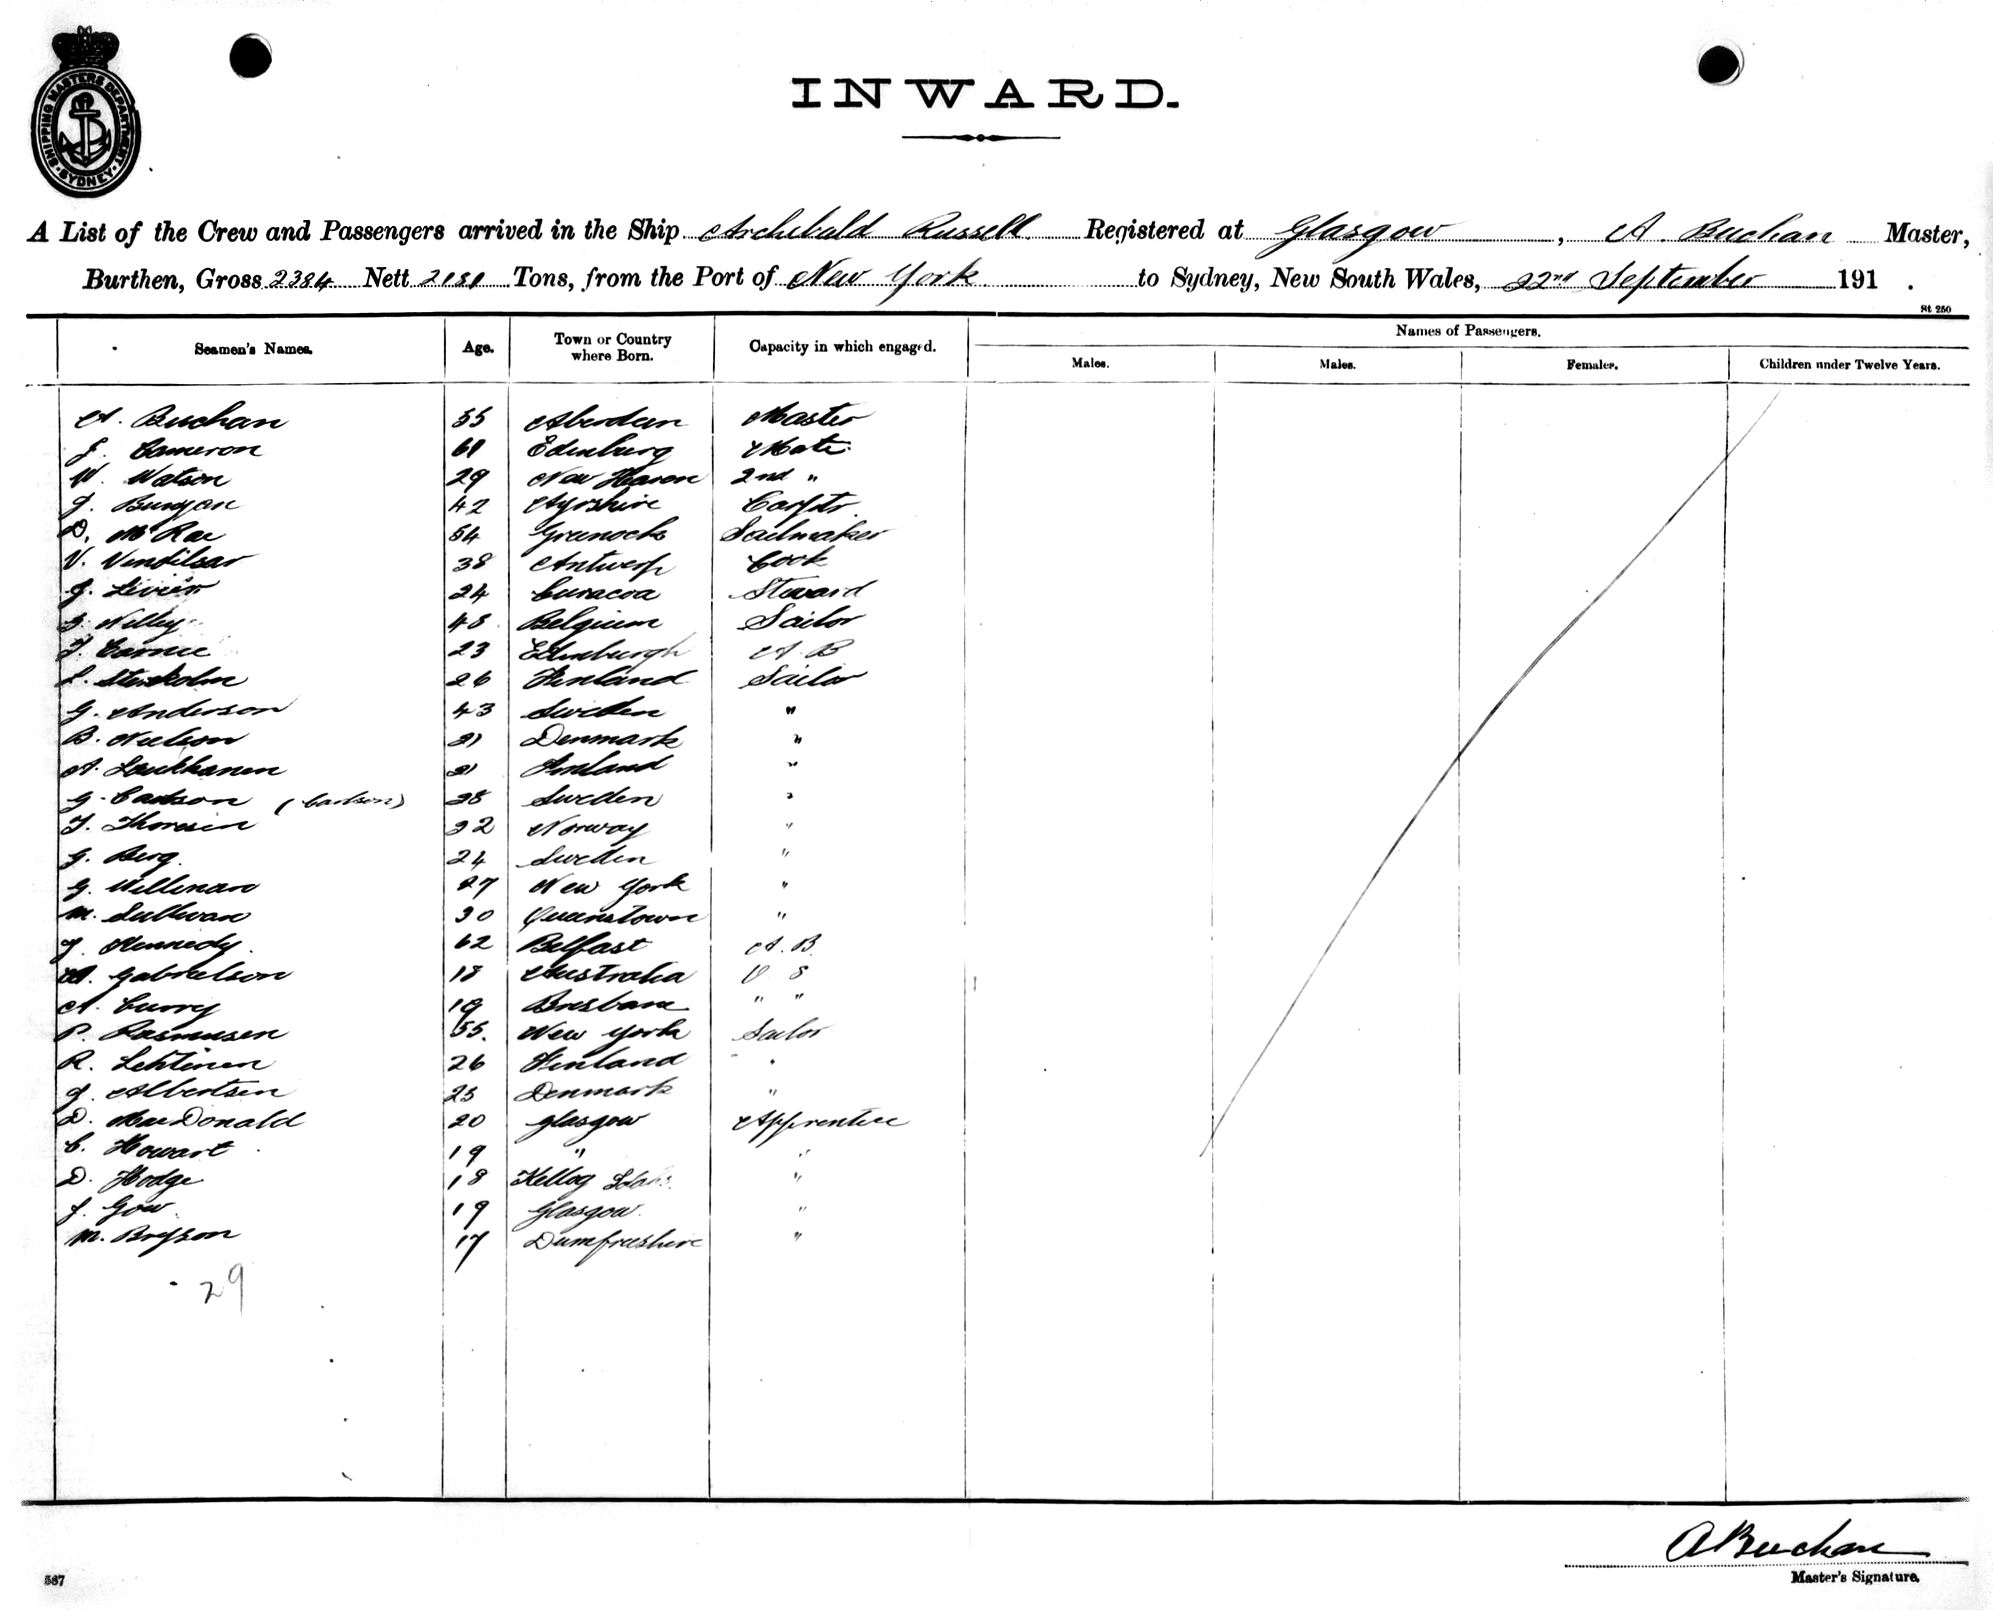 SHIPPING MASTERS DEPARTMENT
SYDNEY
INWARD.
A List of the Crew and Passengers arrived in the Ship Archibald Russell Registered at Glasgow, A. Buchan Master,
Burthen, Gross 2384 Nett 2181 Tons, from the Port of New York to Sydney, New South Wales, 22nd September 191 .
St 250
Seamen's Names. Age. Town or Country where Born. Capacity in which engaged. Names of Passengers.
Males. Males. Females. Children under Twelve Years.
A. Buchan 55 Aberdeen Master
J. Cameron 61 Edenburg Mate
W. Watson 29 New Haven 2nd "
J. Bunyan 42 Ayrshire Carptr.
D. McRae 54 Greenock Sailmaker
V. 38 Antwerp Cook
J. 24 Curacoa Steward
48 Belgium Sailor
T. Carnie 23 Edinburgh A B
26 Finland Sailor
G. Anderson 43 Sweden "
B. Neilson 21 Denmark "
A. Laukkanen 21 Finland "
G. Carlson (Carlson) 28 Sweden "
T. Thoresen 22 Norway "
G. Berg. 24 Sweden "
G. Willman 27 New York "
M. Sullivan 30 Queenstown "
J. Kennedy. 62 Belfast A. B.
A. Gabrielson 18 Australia O S
A. Curry 19 Brisbane " "
P. Rasmusen 55. New York Sailor
R. Lehtinen 26 Finland "
J. Albertsen 25 Denmark "
D. MacDonald 20 Glasgow Apprentice
C. Howart 19 " "
D. Hodge 18 Kellog Idaho "
J. Gow. 19 Glasgow. "
M. Bryson 17 Dumfreshire "
29
A Buchan
Master's Signature.
567